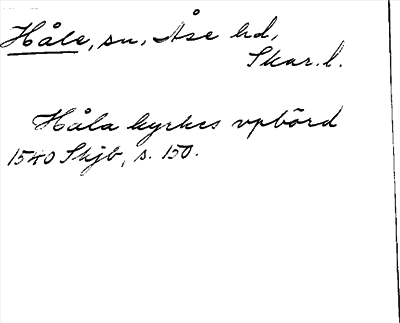 Håle, sn, Åse hd,
Skar. l.
Håla kyrkes vpbörd
1540 Skjb, s. 150.